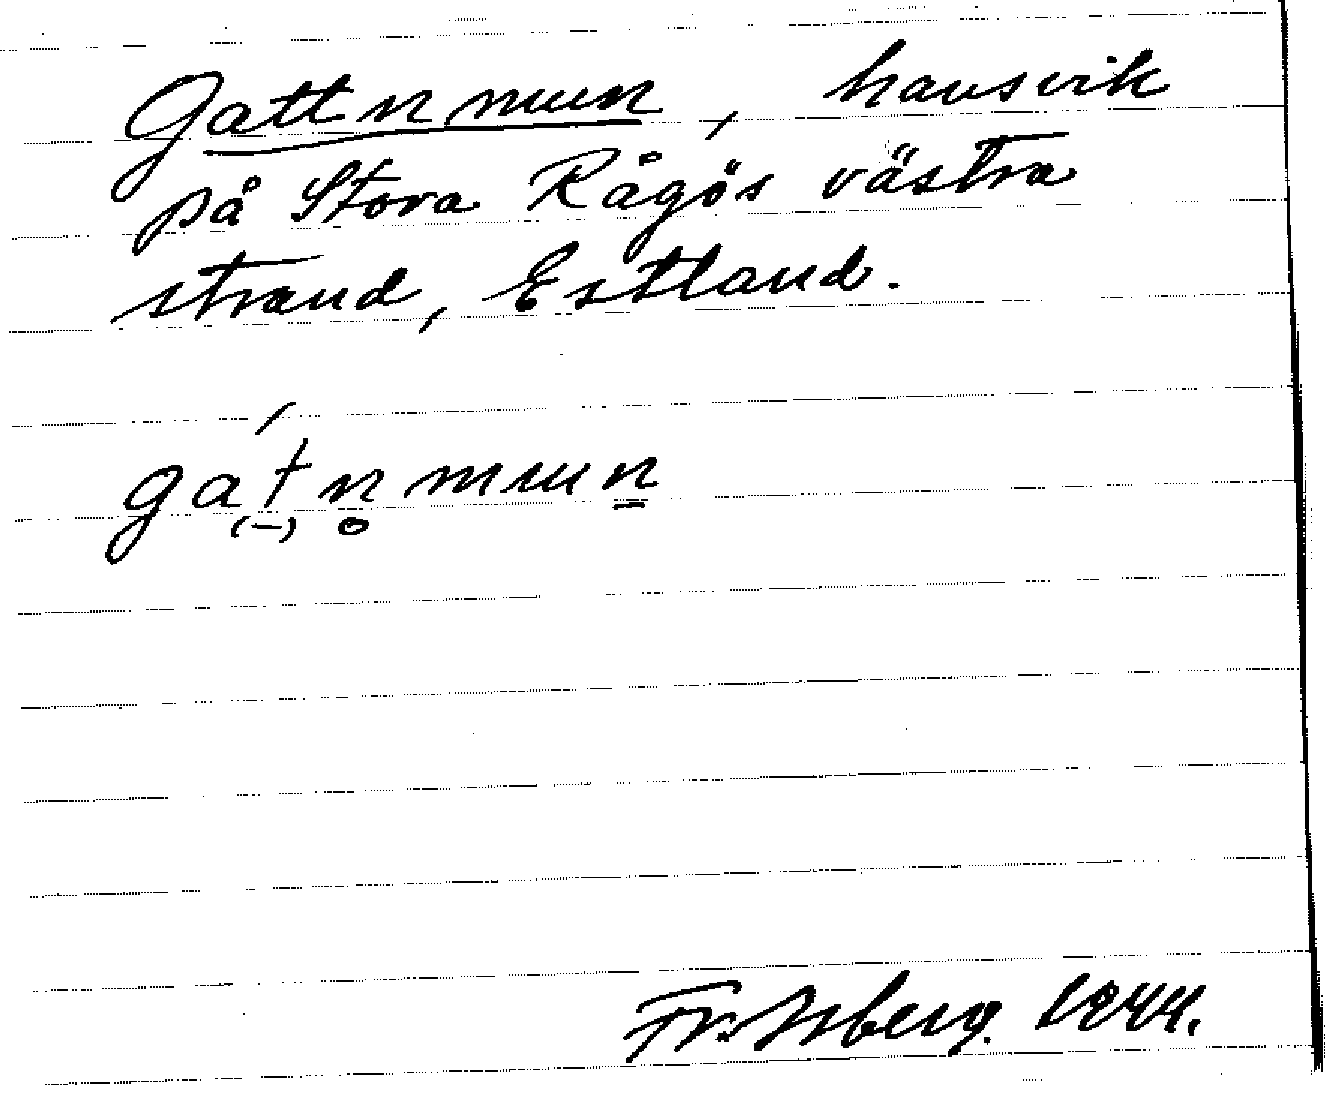 Gattn mun, havsvik
på Stora Rågös västra
strand, Estland.
gatn mun
Fr. Isberg. 1944.